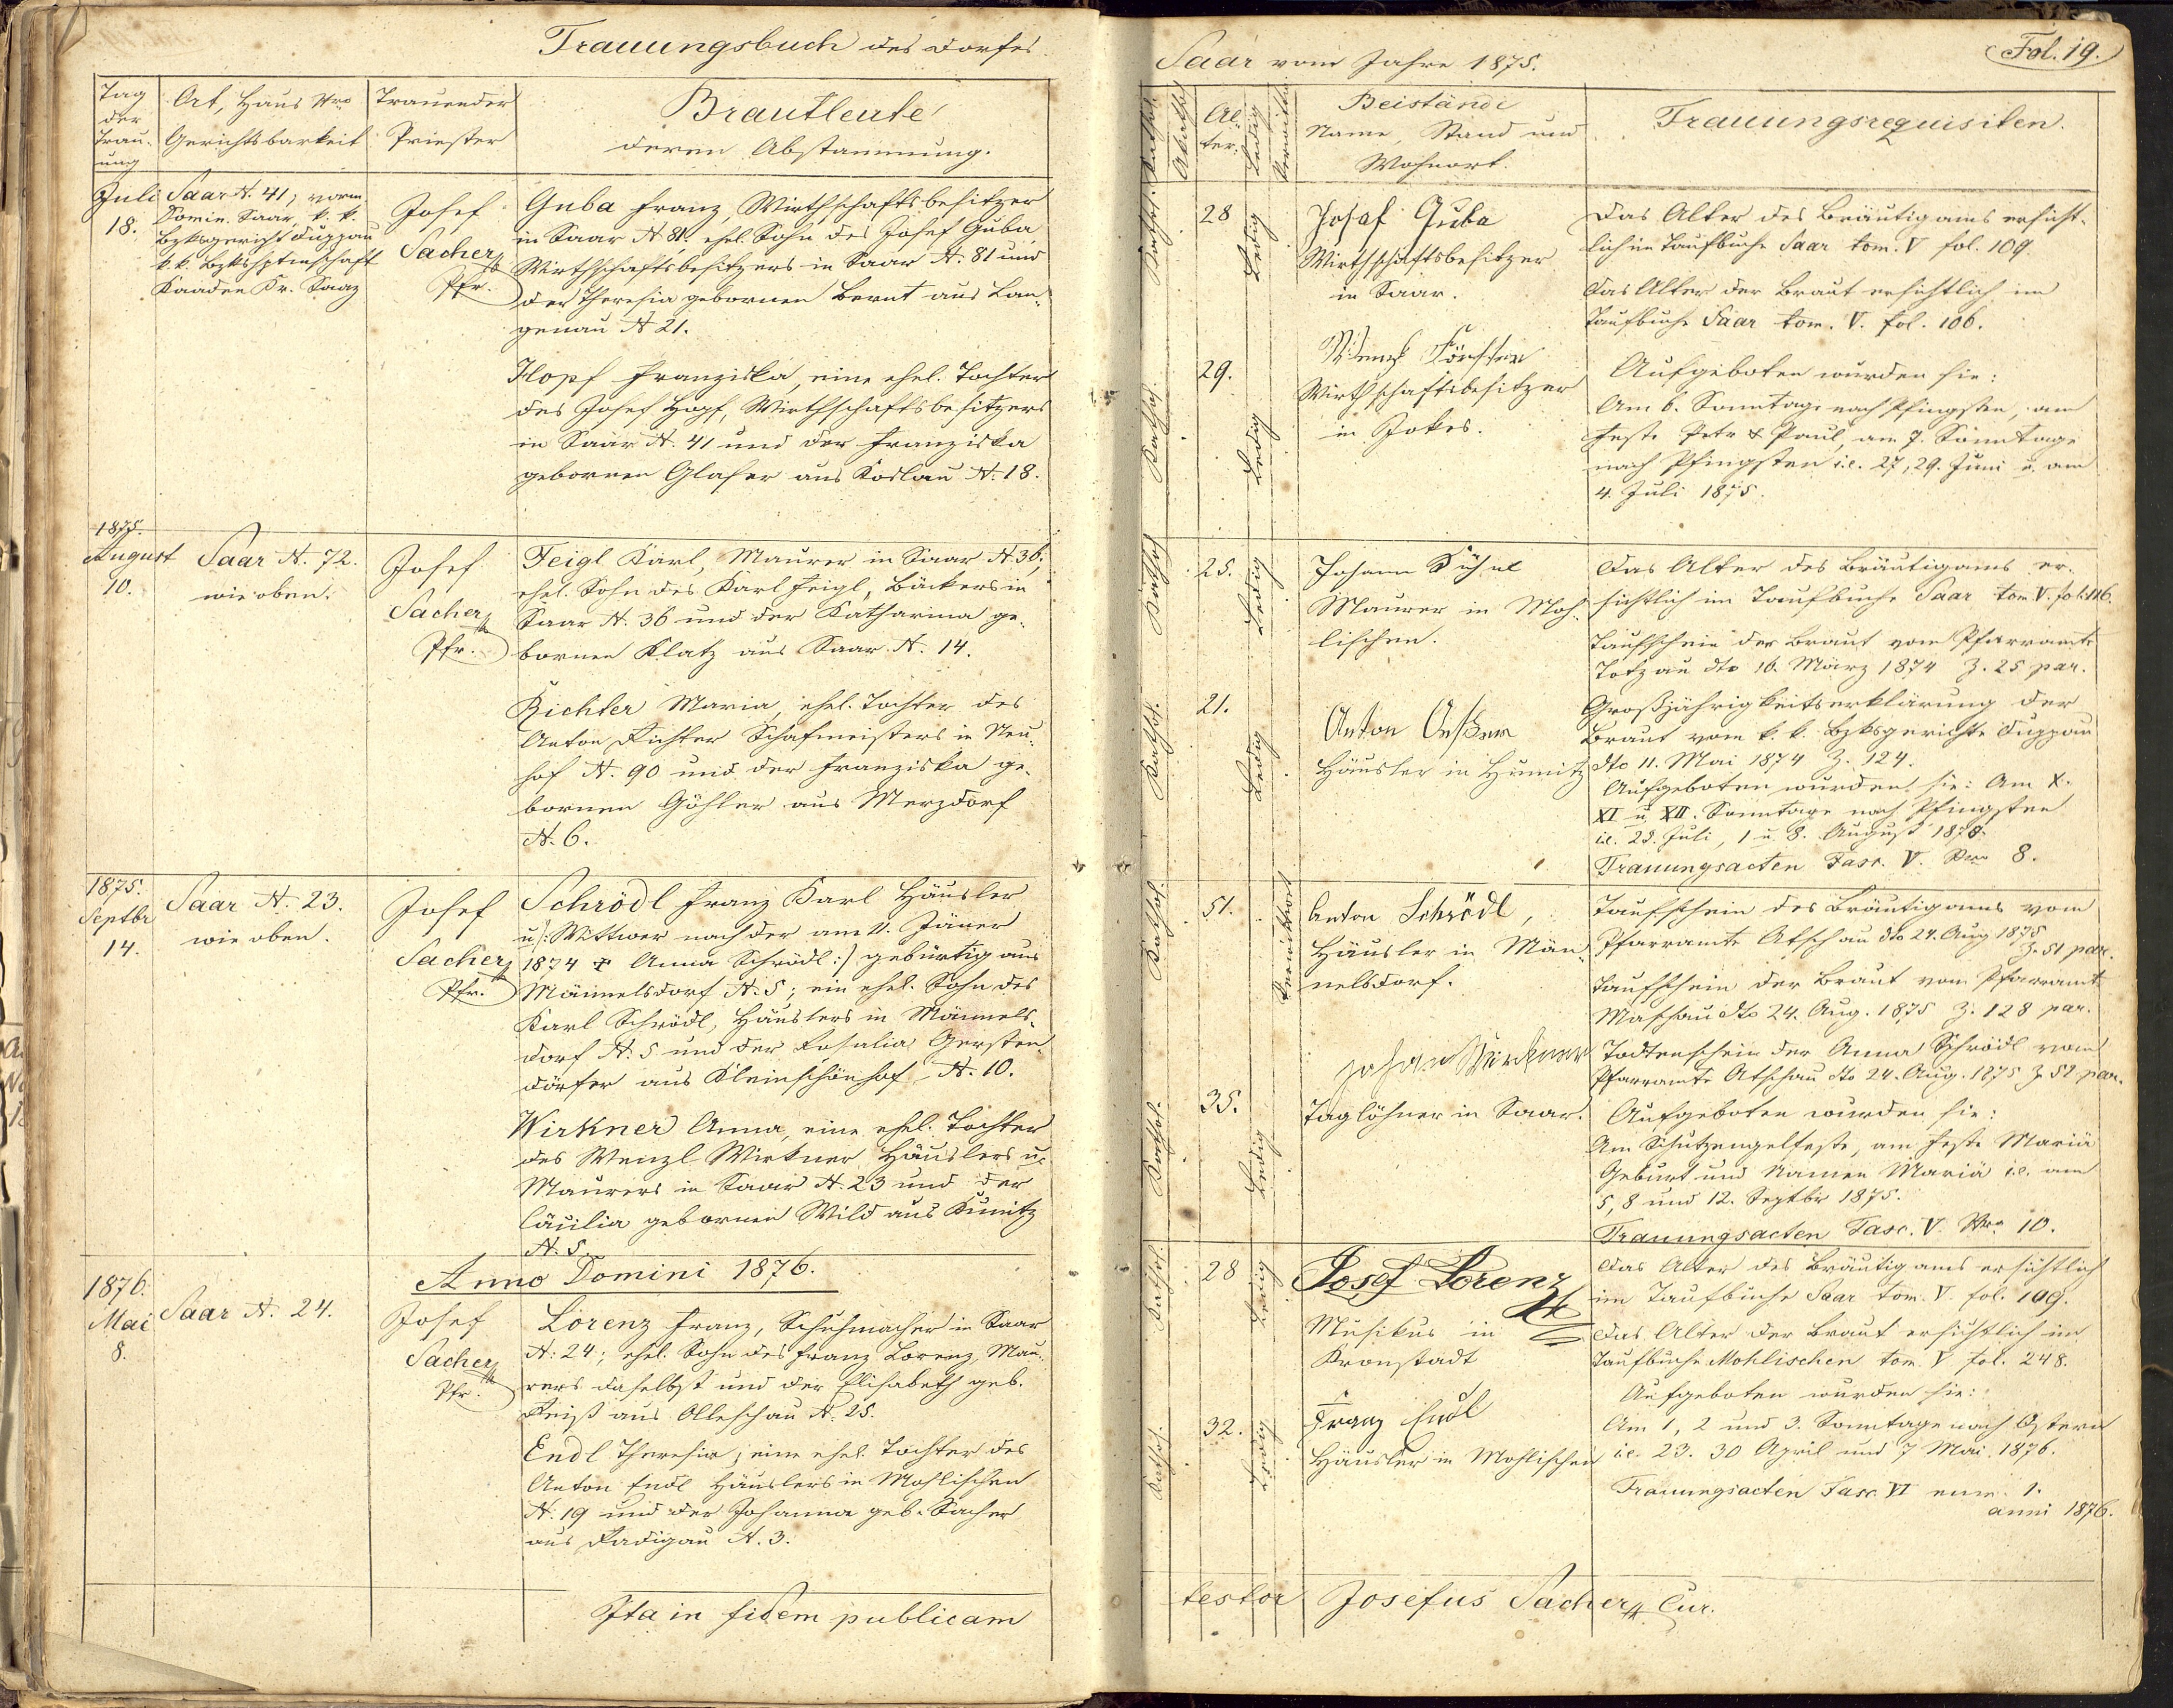 Trauungsbuch des Dorfes
Tag der Trau-ung
Ort, Haus Nro Gerichtsbarkeit
Trauender Priester
Brautleute
deren Abstammung.
Juli
18.
Saar N. 41, vorm.
Domin. Saar, k. k.
Bzksgericht Duppau
k. k. Bzkshptmschaft
Kaaden Kr. Saaz
Josef
Sacher
Pfr.
Guba Franz, Wirthschaftsbesitzer
in Saar N 81. ehel. Sohn des Josef Guba
Wirthschaftsbesitzers in Saar N. 81 und
der Theresia gebornen Bernt aus Lan-
genau N 21.
Hopf Franziska, eine ehel. Tochter
des Josef Hopf, Wirthschaftsbesitzers
in Saar N. 41 und der Franziska
gebornen Glaser aus Koslau N. 18.
1875.
August
10.
Saar N. 72.
wie oben.
Josef
Sacher
Pfr.
Feigl Karl, Maurer in Saar N 36;
ehel. Sohn des Karl Feigl, Bäckers in
Saar N. 36 und der Katharina ge-
bornen Klatz aus Saar N. 14.
Richter Maria, ehel. Tochter des
Anton Richter Schafmeisters in Neu-
hof N. 90 und der Franziska ge-
bornen Göhler aus Merzdorf
N. 6.
1875.
Septbr
14.
Saar N. 23.
wie oben.
Josef
Sacher
Pfr.
Schrödl Franz Karl Häusler
u /: Wittwer nach der am 11. Jäner
1874 + Anna Schrödl :/ gebürtig aus
Männelsdorf N. 5; ein ehel. Sohn des
Karl Schrödl, Häuslers in Männels-
dorf N. 5 und der Rosalia Gersten-
dörfer aus Kleinschönhof N. 10.
Wirkner Anna, eine ehel. Tochter
des Wenzl Wirkner Häuslers u.
Maurers in Saar N. 23 und der
Cäcilia gebornen Wild aus Kunitz
N. 5.
Anno Domini 1876.
1876.
Mai
8.
Saar N. 24.
Josef
Sacher
Pfr.
Lorenz Franz, Schuhmacher in Saar
N. 24; ehel. Sohn des Franz Lorenz, Mau-
rers daselbst und der Elisabeth geb.
Reiß aus Olleschau N. 25.
Endl Theresia, eine ehel. Tochter des
Anton Endl Häuslers in Mohlischen
N. 19 und der Johanna geb. Sacher
aus Radigau N. 3.
Ita in fidem publicam
Saar vom Jahre 1875.
Fol. 19.
Al-ter.
Ledig
Beistände
Name, Stand und
Wohnort.
Trauungsrequisiten.
Kathol.
28
Ledig
Josef Guba
Wirthschaftsbesitzer
in Saar.
Kathol.
29.
Ledig
Wirthschaftsbesitzer
in Jokes.
Das Alter des Bräutigams ersicht-
lich im Taufbuche Saar tom. V fol. 109.
Das Alter der Braut ersichtlich im
Taufbuche Saar tom. V. fol. 106.
Aufgeboten wurden sie:
Am 6. Sonntage nach Pfingsten, am
Feste Petr & Paul, am 7. Sonntage
nach Pfingsten i.e. 27, 29. Juni u. am
4. Juli 1875.
Kathol.
25.
Ledig
Johann
Maurer in Moh-
lischen.
Kathol.
21.
Ledig
Anton
Häusler in
Das Alter des Bräutigams er-
sichtlich im Taufbuche Saar tom. V. fol. 116.
Taufschein der Braut vom Pfarramte
Totzau dto 16. März 1874 Z. 25 par.
Großjährigkeitserklärung der
Braut vom k. k. Bzksgerichte Duppau
dto 11. Mai 1874 Z. 124.
Aufgeboten wurden sie: Am X.
XI u. XII. Sonntage nach Pfingsten
i.e. 25. Juli, 1 u. 8. August 1875.
Trauungsacten Fasc. V. Nro 8.
Kathol.
51.
Verwittwet
Anton Schrödl,
Häusler in Män-
nelsdorf.
Kathol.
35.
Ledig
Johan Wirkner
Taglöhner in Saar.
Taufschein des Bräutigams vom
Pfarramte Atschau dto 24. Aug. 1875
Z. 51 par.
Taufschein der Braut vom Pfarramt
Maschau dto 24. Aug. 1875 Z. 128 par.
Todtenschein der Anna Schrödl vom
Pfarramte Atschau dto 24. Aug. 1875 Z 52 par.
Aufgeboten wurden sie:
Am Schutzengelfeste, am Feste Mariä
Geburt und Namen Mariä i.e. am
5, 8 und 12. Septbr 1875.
Trauungsacten Fasc. V. Nro 10.
Kathol.
28
Ledig
Josef Lorenz
Musikus in
Kronstadt
Kathol.
32.
Ledig
Franz Endl
Häusler in Mohlischen
Das Alter des Bräutigams ersichtlich
im Taufbuche Saar tom. V. fol. 109.
Das Alter der Braut ersichtlich im
Taufbuche Mohlischen tom. V fol. 248.
Aufgeboten wurden sie:
Am 1, 2 und 3. Sonntage nach Ostern
i.e. 23. 30 April und 7 Mai 1876.
Trauungsacten Fasc. VI num. 1.
anni 1876.
testor Josefus Sacher Cur.